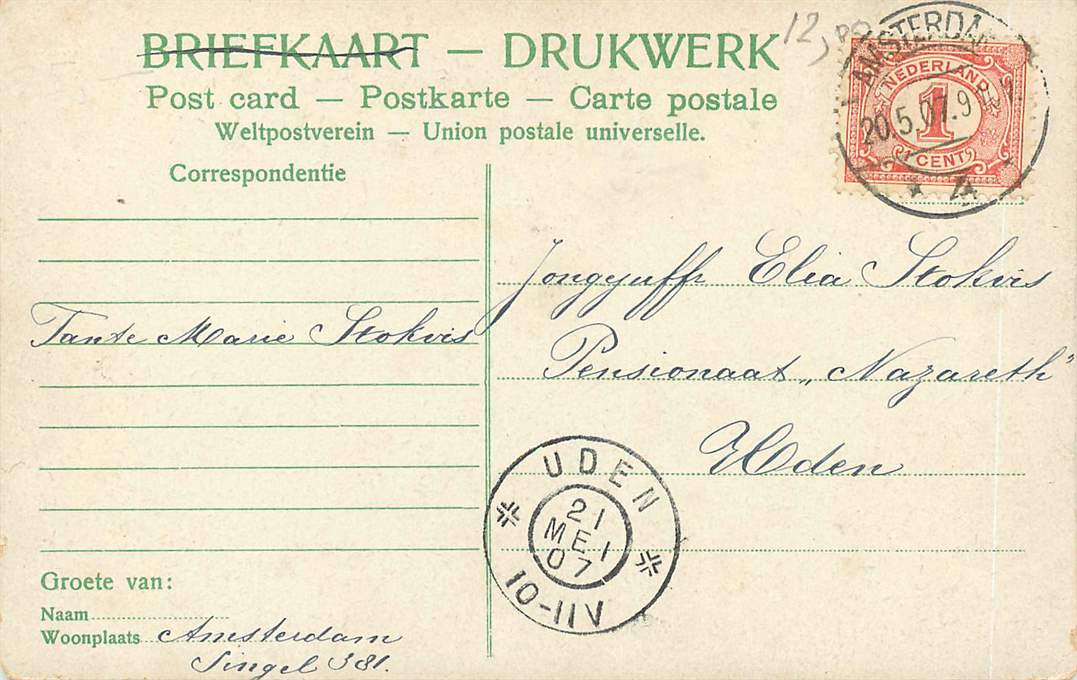 BRIEFKAART — DRUKWERK
Post card — Postkarte — Carte postale
Weltpostverein — Union postale universelle.
Correspondentie
12,50
AMSTERDAM
20.5.07.9
* 4
NEDERLAND
1
CENT
Tante Marie Stokvis
Jongejuffr Elia Stokvis
Pensionaat „Nazareth"
Uden
UDEN
21
MEI
07
10-11V
Groete van:
Naam
Woonplaats Amsterdam
Singel 381.